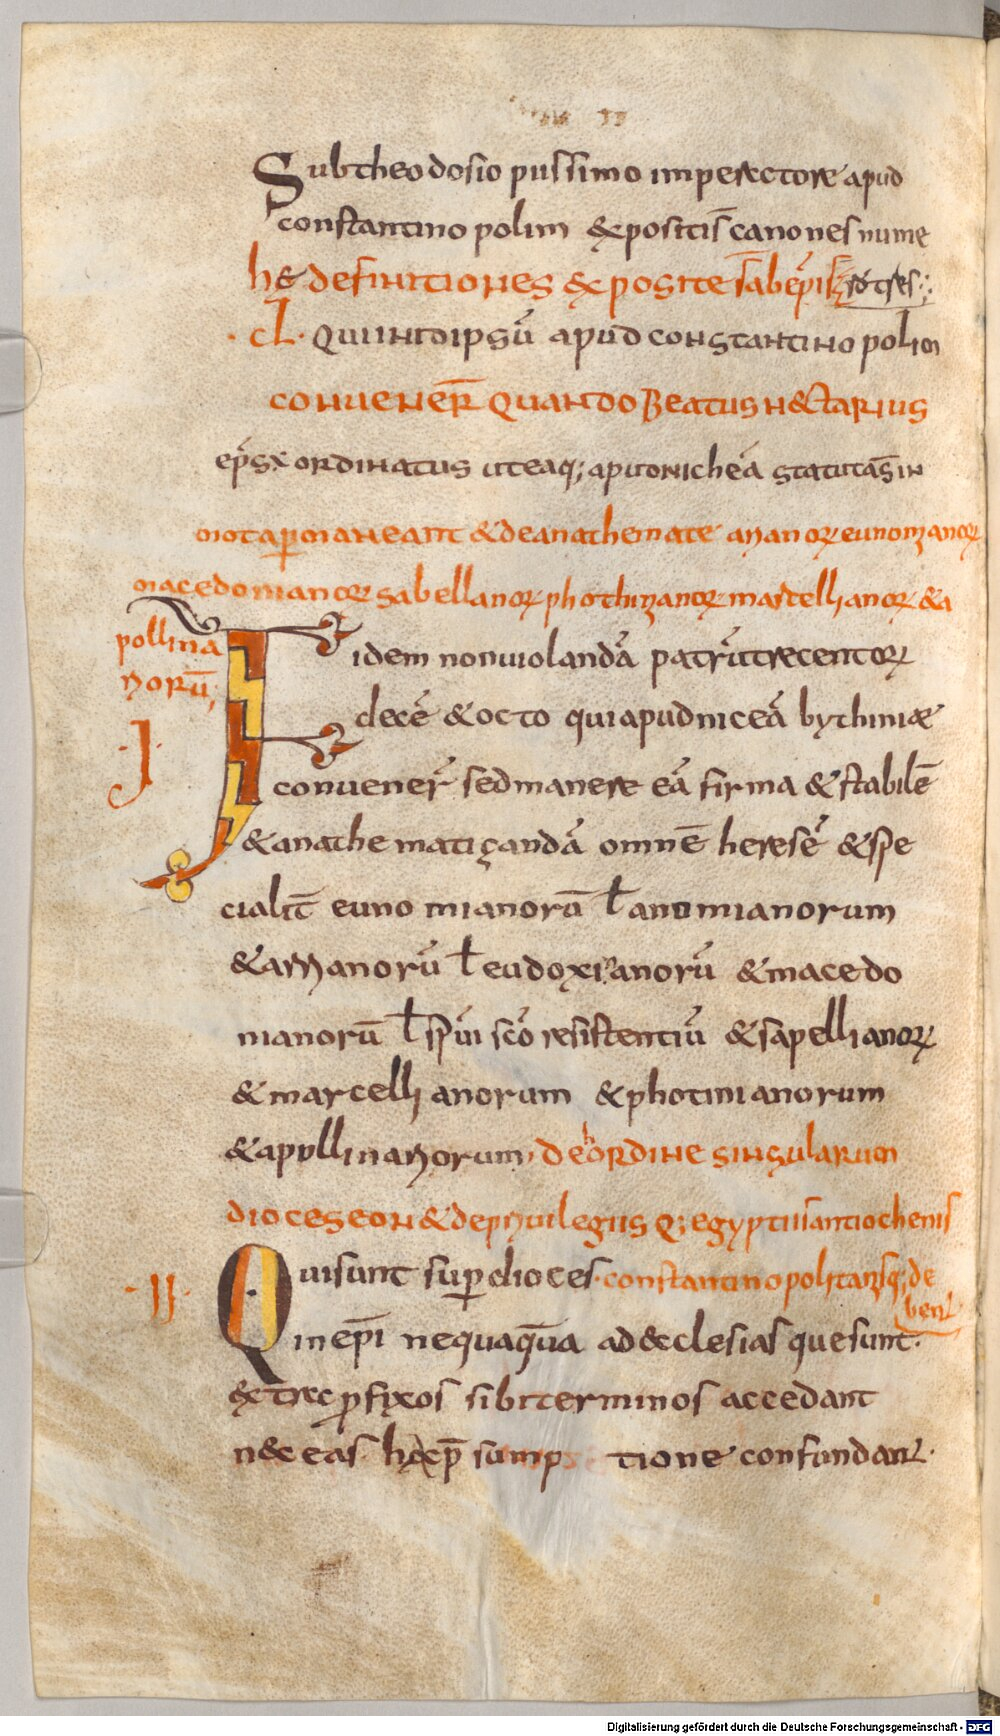 Sub theodosio piissimo imperatore apud
constantinopolim & positis̄ canones nume
hę definitiones & posite s̄ ab ep̄is ro tres
·cl· qui in idipsū apud constantinopolim
conueneR̄ quando beatus n&tarius
ep̄s ÷ ordinatus ut eaq; aput nicheā statuta s̄ in
mota p̲maneant & de anathemate arianoꝝ eunomianoꝝ
macedonianoꝝ sabellanoꝝ phothinianoꝝ martellianoꝝ & a
pollina
riorū;
Fidem non uiolandā patrū trecentoꝝ
·I·
decē & octo qui apud niceā bythiniæ
conuener̄ sed manere eā firma & stabilē
& anathematizandā omnē heresē & spe
cialit̄ eunomianorū ł anomianorum
& arrianorū ł eudoxianorū & macedo
nianorū ł sp̄ui sc̄o resistentiū & sapellianoꝝ
& marcellianorum & photinianorum
& apollinariorum, de hordine singularum
dioceseon & de priuilegiis q; egyptiis antiochenis
·II·
Qui sunt sup̲ dioces· constantinopolitanisq; de
bent
in ep̄i nequaquā ad ecclesias que sunt·
extra p̲fixos sibi terminos accedant
nec eas hac p̄sumptione confundant·
Digitalisierung gefördert durch die Deutsche Forschungsgemeinschaft - DFG